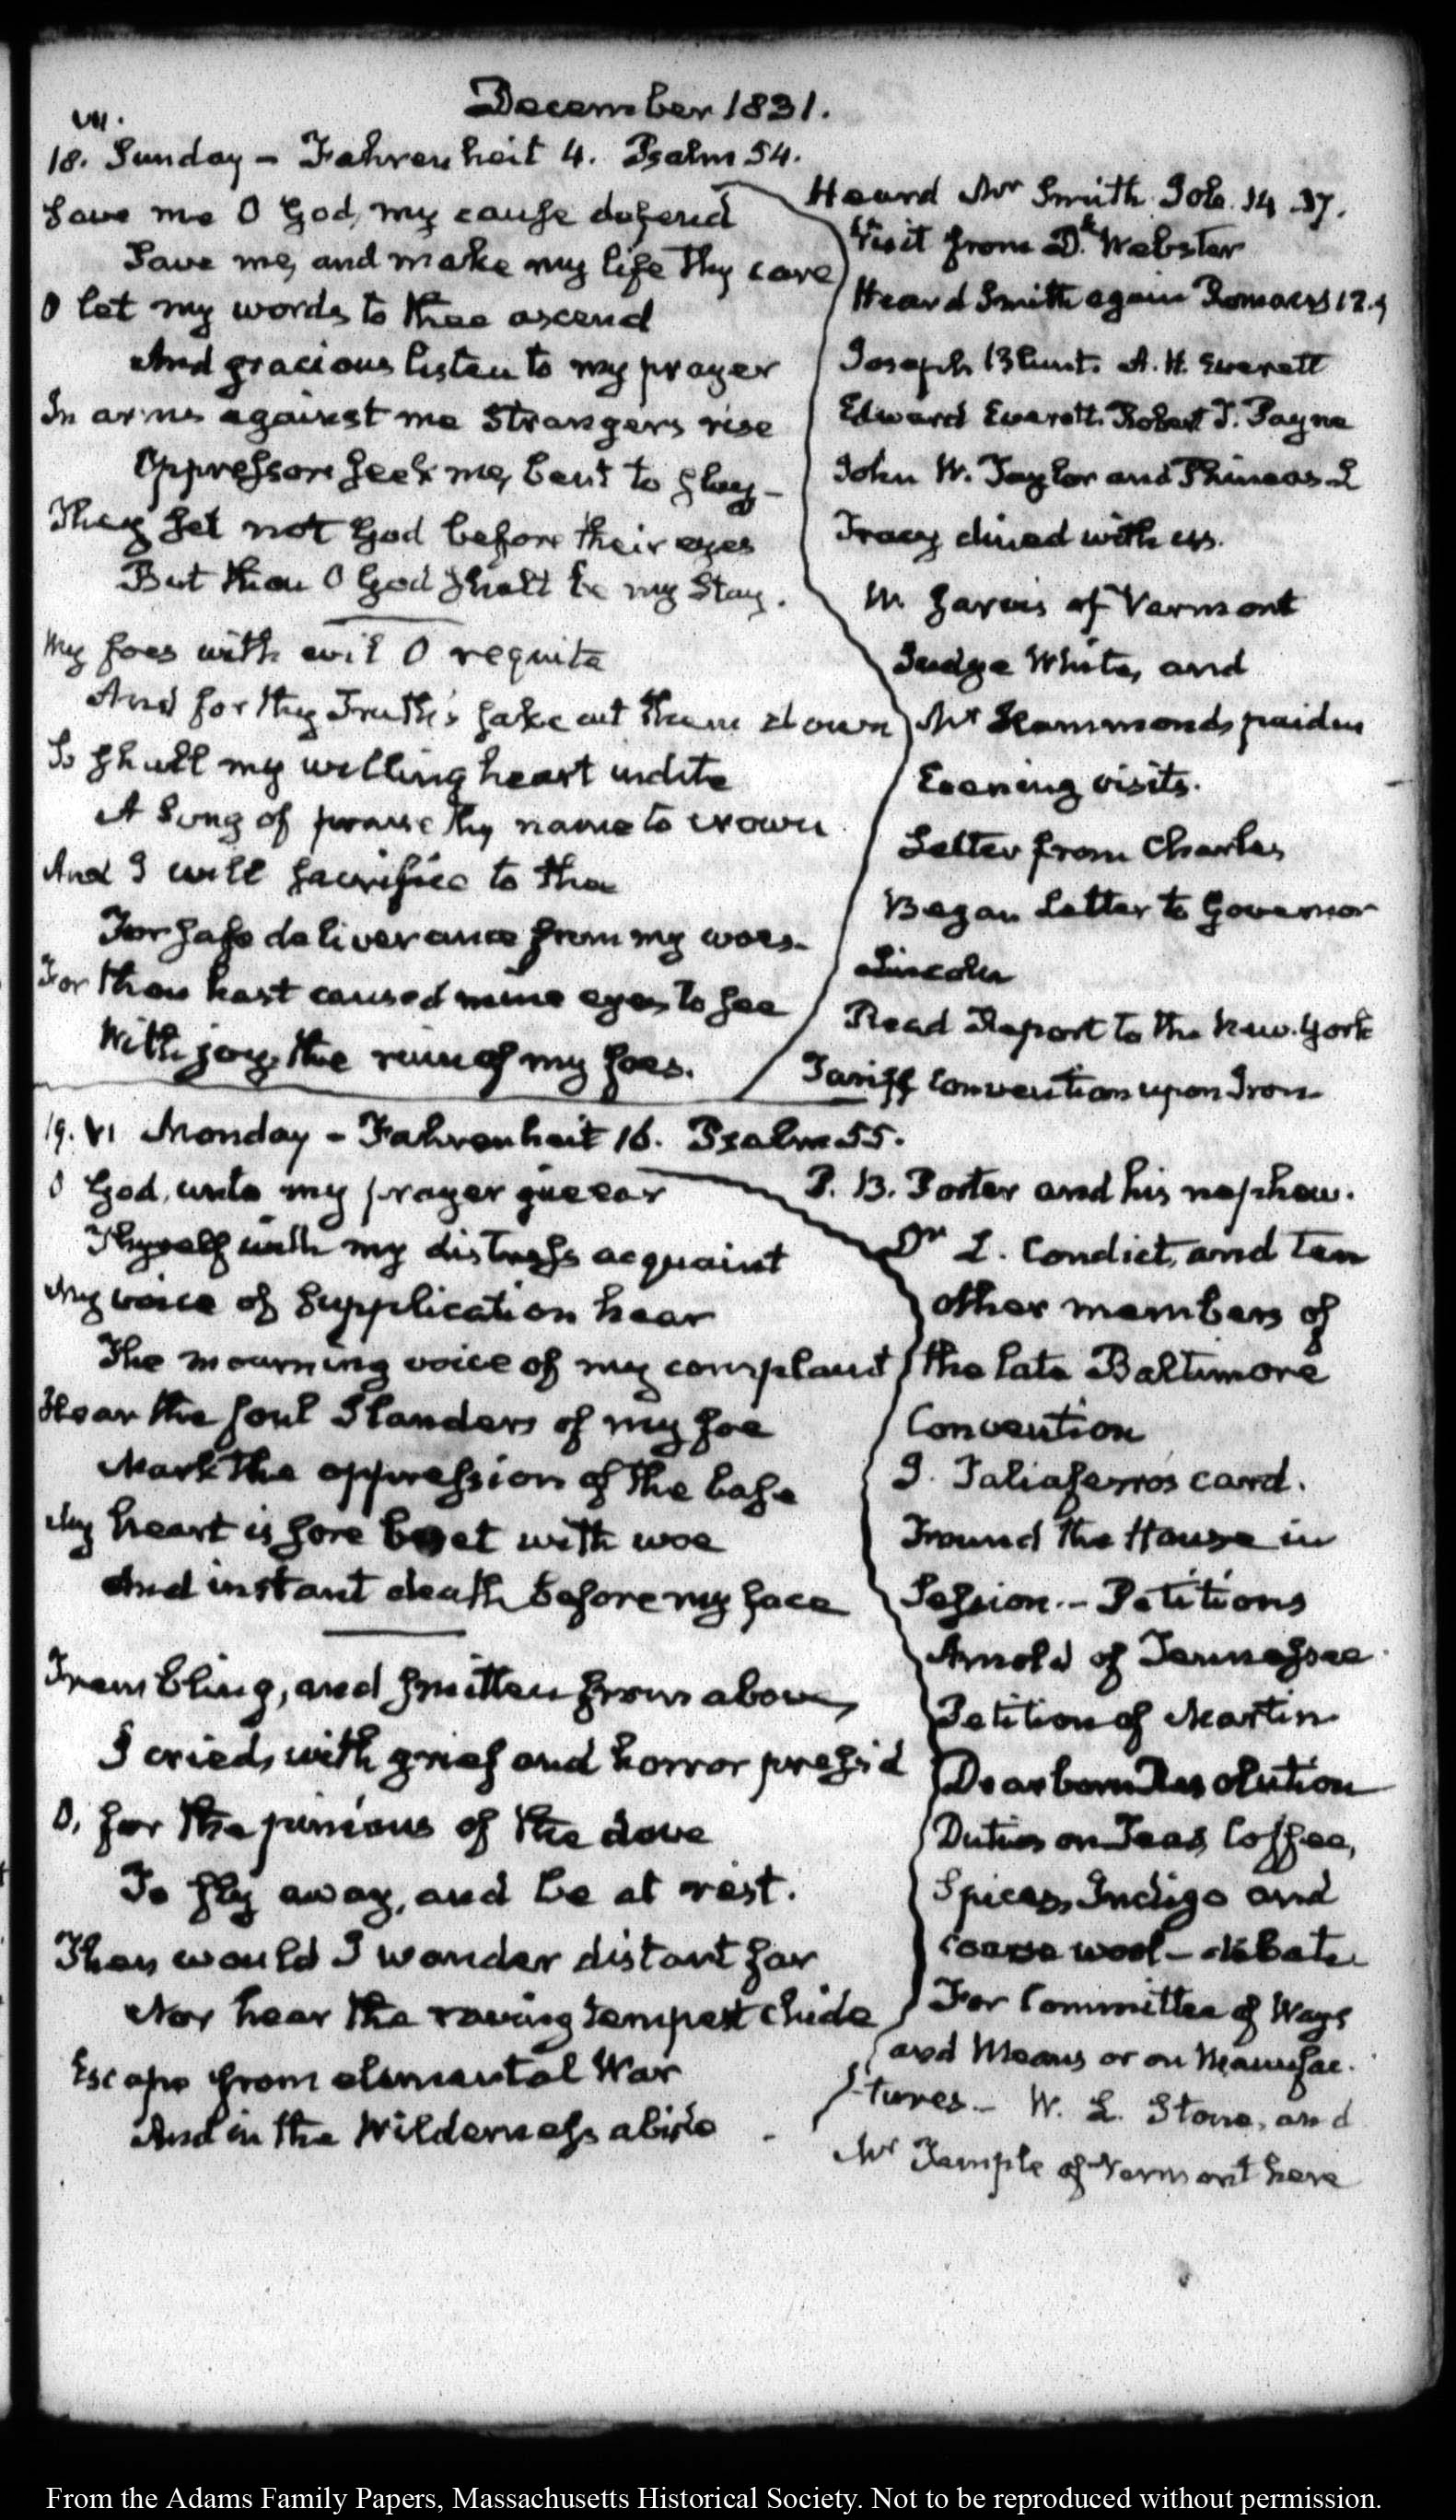 December 1831.
VII.
18. Sunday - Fahrenheit 4. Psalm 54.
Save me O God, my cause defend
Save me, and make my life thy care
O let my words to thee ascend
And gracious listen to my prayer
In arms against me Strangers rise
Oppressors seek me, bent to slay -
They set not God before their eyes
But thou O God shalt be my Stay.
My foes with evil O requite
And for thy Truth's sake cut them down
So shall my willing heart indite
A Song of praise thy name to crown
And I will sacrifice to thee
For safe deliverance from my woes.
For thou hast caused mine eyes to see
With joy, the ruin of my foes.
Heard Mr Smith Job. 14 .
Visit from D. Webster
Heard Smith again Romans 12.9
Joseph Blunt. A. H. Everett
Edward Everett. Robert T. Payne
John W. Taylor and Phineas L
Tracy dined with us.
Mr Jarvis of Vermont
Judge White, and
Mr Hammond, paid us
Evening visits.
Letter from Charles
Began Letter to Governor
Lincoln
Read Report to the New-York
Tariff Convention upon Iron
19. VI Monday - Fahrenheit 16. Psalm 55.
O God, unto my prayer give ear
Thyself with my distress acquaint
My voice of Supplication hear
The mourning voice of my complaint
Hear the foul Slanders of my foe
Mark the oppression of the base
My heart is sore beset with woe
And instant death before my face
Trembling, and smitten from above,
I cried, with grief and horror press'd
O, for the pinions of the dove
To fly away, and be at rest.
Then would I wander distant far
Nor hear the raving tempest chide
Escape from elemental War
And in the Wilderness abide.
P. B. Porter and his nephew.
Dr L. Condict, and ten
other members of
the late Baltimore
Convention
J. Taliaferro's card.
Found the House in
Session. - Petitions
Arnold of Tennessee
Petition of Martin
Dearborn Resolution
Duties on Teas, Coffee,
Spices, Indigo and
coarse wool - debate
For Committee of Ways
and Means or on Manufac-
-tures - W. L. Stone, and
Mr Temple of Vermont here
From the Adams Family Papers, Massachusetts Historical Society. Not to be reproduced without permission.